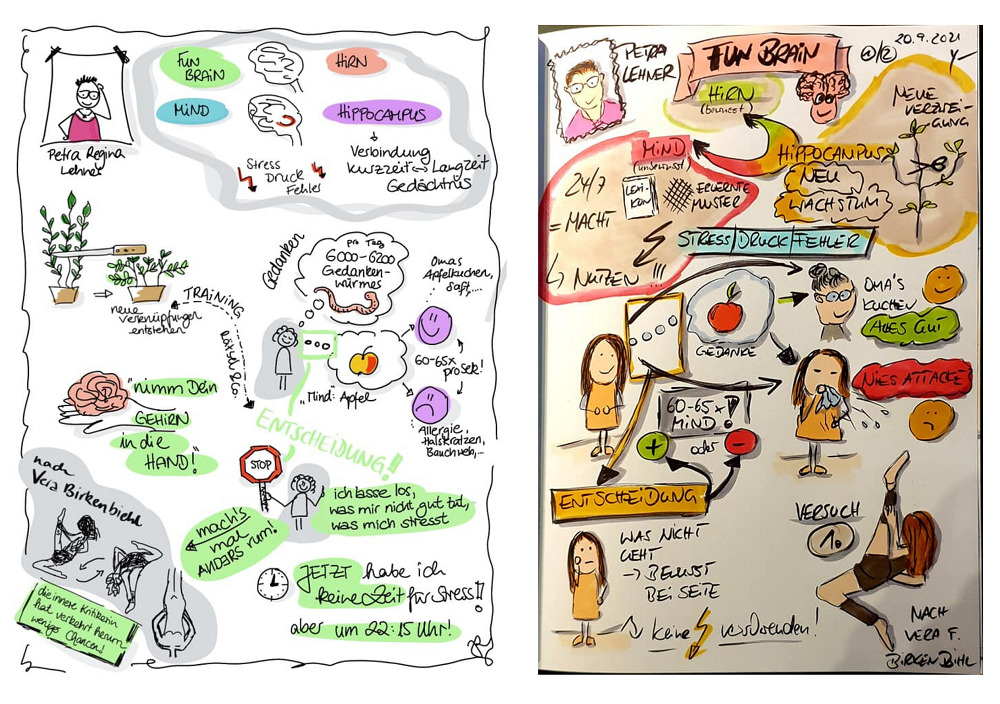 FUN
BRAIN
HiRN
MiND
HiPPOCAMPUS
Petra Regina
Lehner
Verbindung
Kurzzeit ↔ Langzeit
Gedächtnis
Stress
Druck
Fehler
neue
Verknüpfungen
entstehen
TRAiNiNG
Gedanken
pro Tag
6000-6200
Gedanken-
würmer
Omas
Apfelkuchen,
Saft,....
60-65x
pro Sek!
Mind: Apfel
Allergie,
Halskratzen,
Bauchweh,..
"nimm Dein
GEHiRN
in die
HAND!"
ENTSCHEiDUNG!!
STOP
ich lasse los,
was mir nicht gut tut,
was mich stresst
nach
Vera Birkenbiehl
mach's
mal
ANDERS rum!
JETZT habe ich
keine Zeit für Stress!!
aber um 22:15 Uhr!
die innere Kritikerin
hat verkehrt herum
weniger Chancen!
PETRA
LEHNER
FUN BRAiN
1/2
20.9.2021
HiRN
(bewusst)
NEUE
VERZWEi-
GUNG
MiND
(unbewusst)
HiPPOCAMPUS
NEU
WACHSTUM
24/7
= MACHT
LEXi-
KON
ERLERNTE
MUSTER
STRESS/DRUCK/FEHLER
↳ NUTZEN !!!
OMA'S
KUCHEN
ALLES GUT
GEDANKE
NiES ATTACKE
60-65x !
MiND!
+ oder -
ENTSCHEiDUNG
VERSUCH
1.
WAS NiCHT
GEHT
→ BEWUSST
BEi SEiTE
keine
NACH
VERA F.
BiRKENBiHL